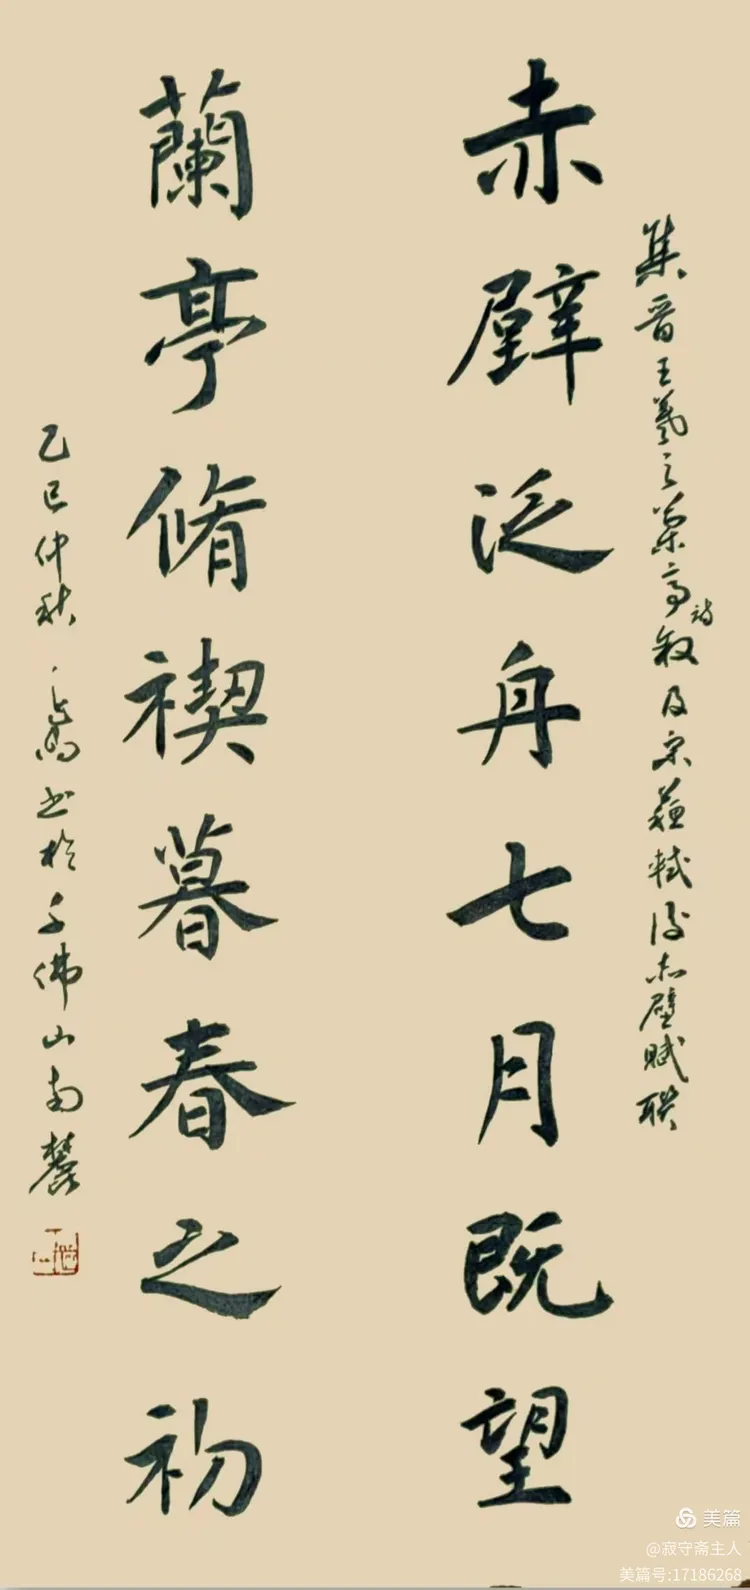 集晋王羲之蘭亭詩叙及宋蘇軾後赤壁賦联
赤壁泛舟七月既望
蘭亭脩禊暮春之初
乙巳仲秋書於千佛山南麓
美篇
@寂守斋主人
美篇号:17186268